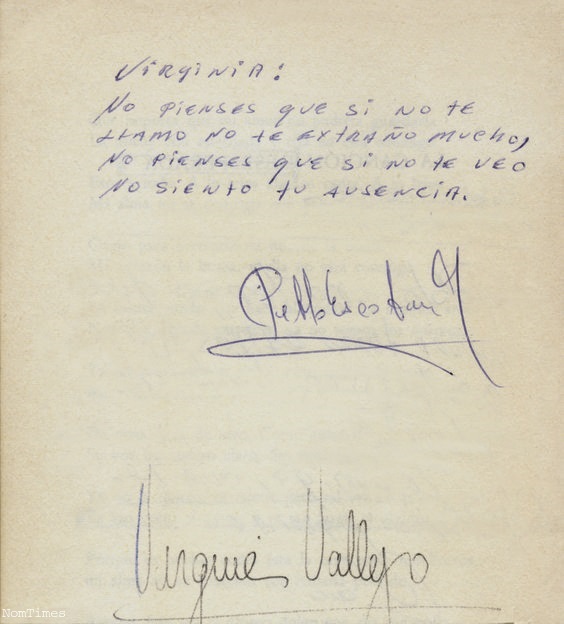 Virginia:
No pienses que si no te
llamo no te extraño mucho,
No pienses que si no te veo
No siento tu ausencia.
Pablo Escobar G
Virginia Vallejo
NomTimes